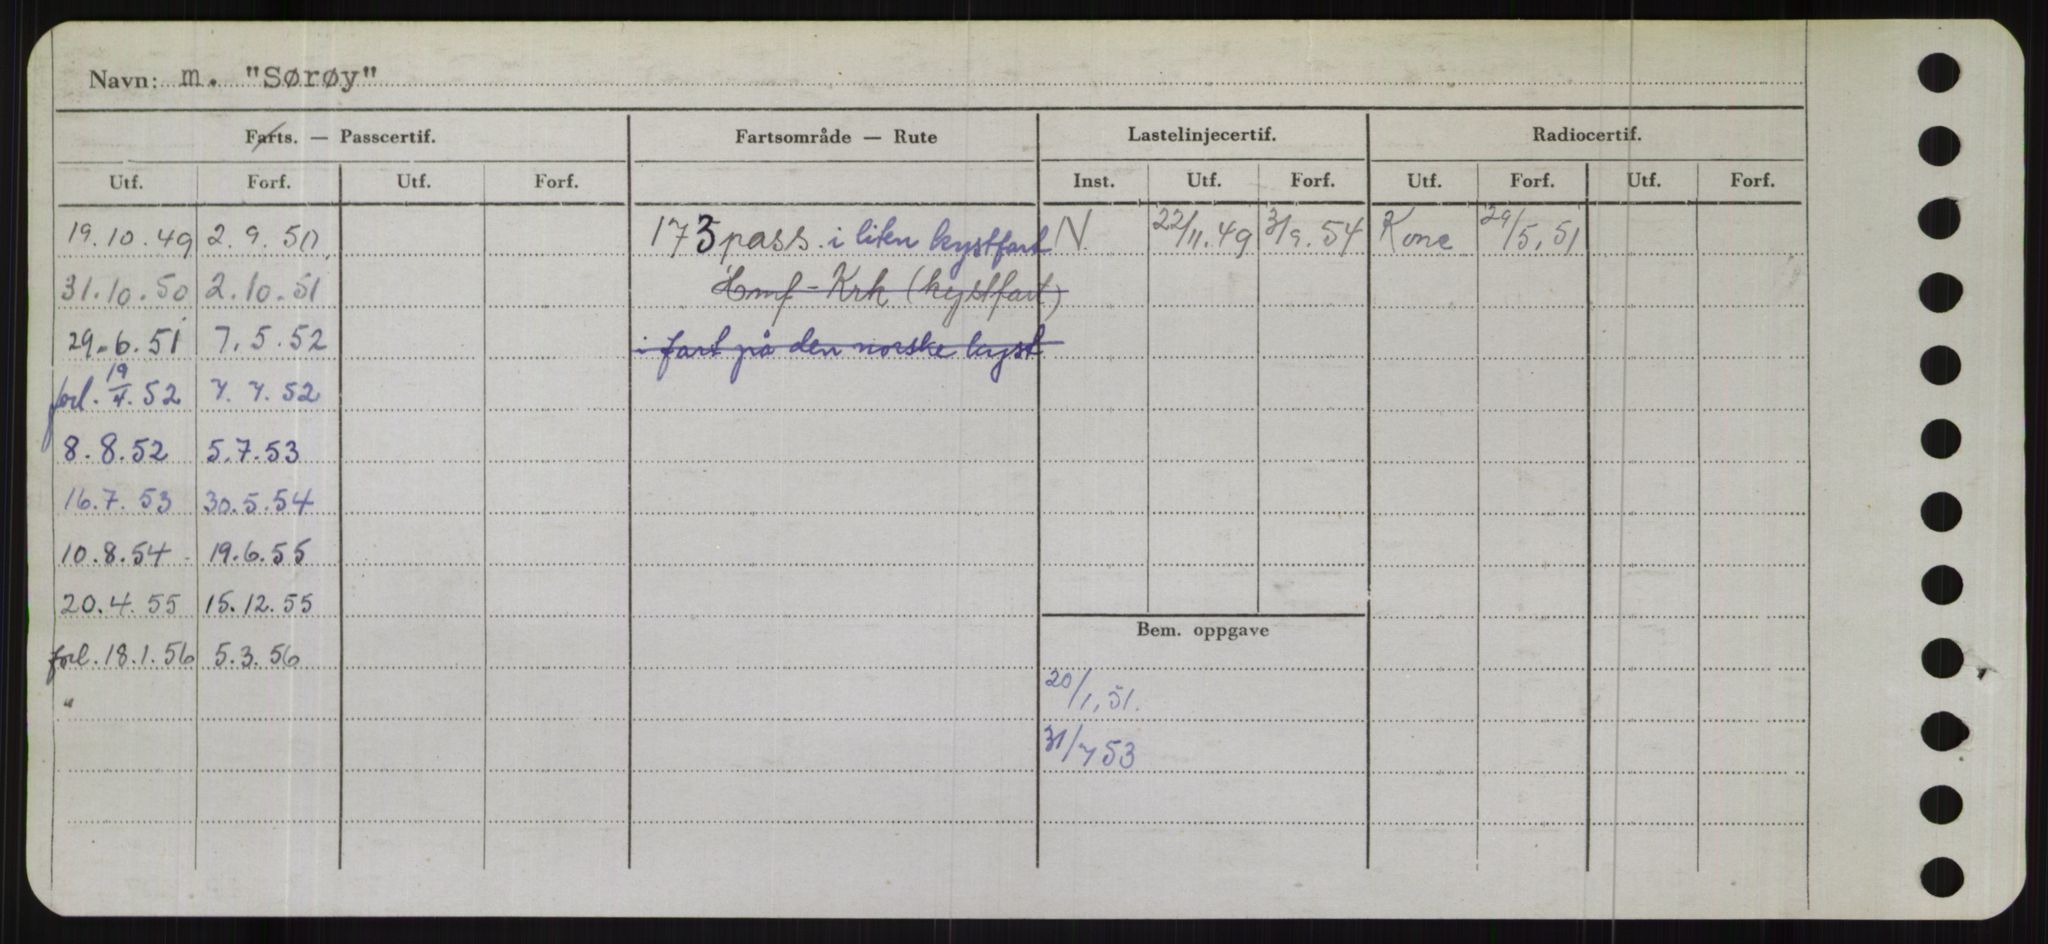 Navn: m. "Sørøy"
Farts. — Passcertif. Fartsområde — Rute Lastelinjecertif. Radiocertif.
Utf. Forf. Utf. Forf. Inst. Utf. Forf. Utf. Forf. Utf. Forf.
19.10.49 2.9.50 173 pass. i liten kystfart N. 22/11.49 3/9.54 Konc 29/5.51
31.10.50 2.10.51 Hmf - Krk (kystfart)
29.6.51 7.5.52 i fart på den norske kyst
forl. 19/4.52 7.7.52
8.8.52 5.7.53
16.7.53 30.5.54
10.8.54 19.6.55
20.4.55 15.12.55
Bem. oppgave
forl. 18.1.56 5.3.56
" 20/1.51.
31/7 53